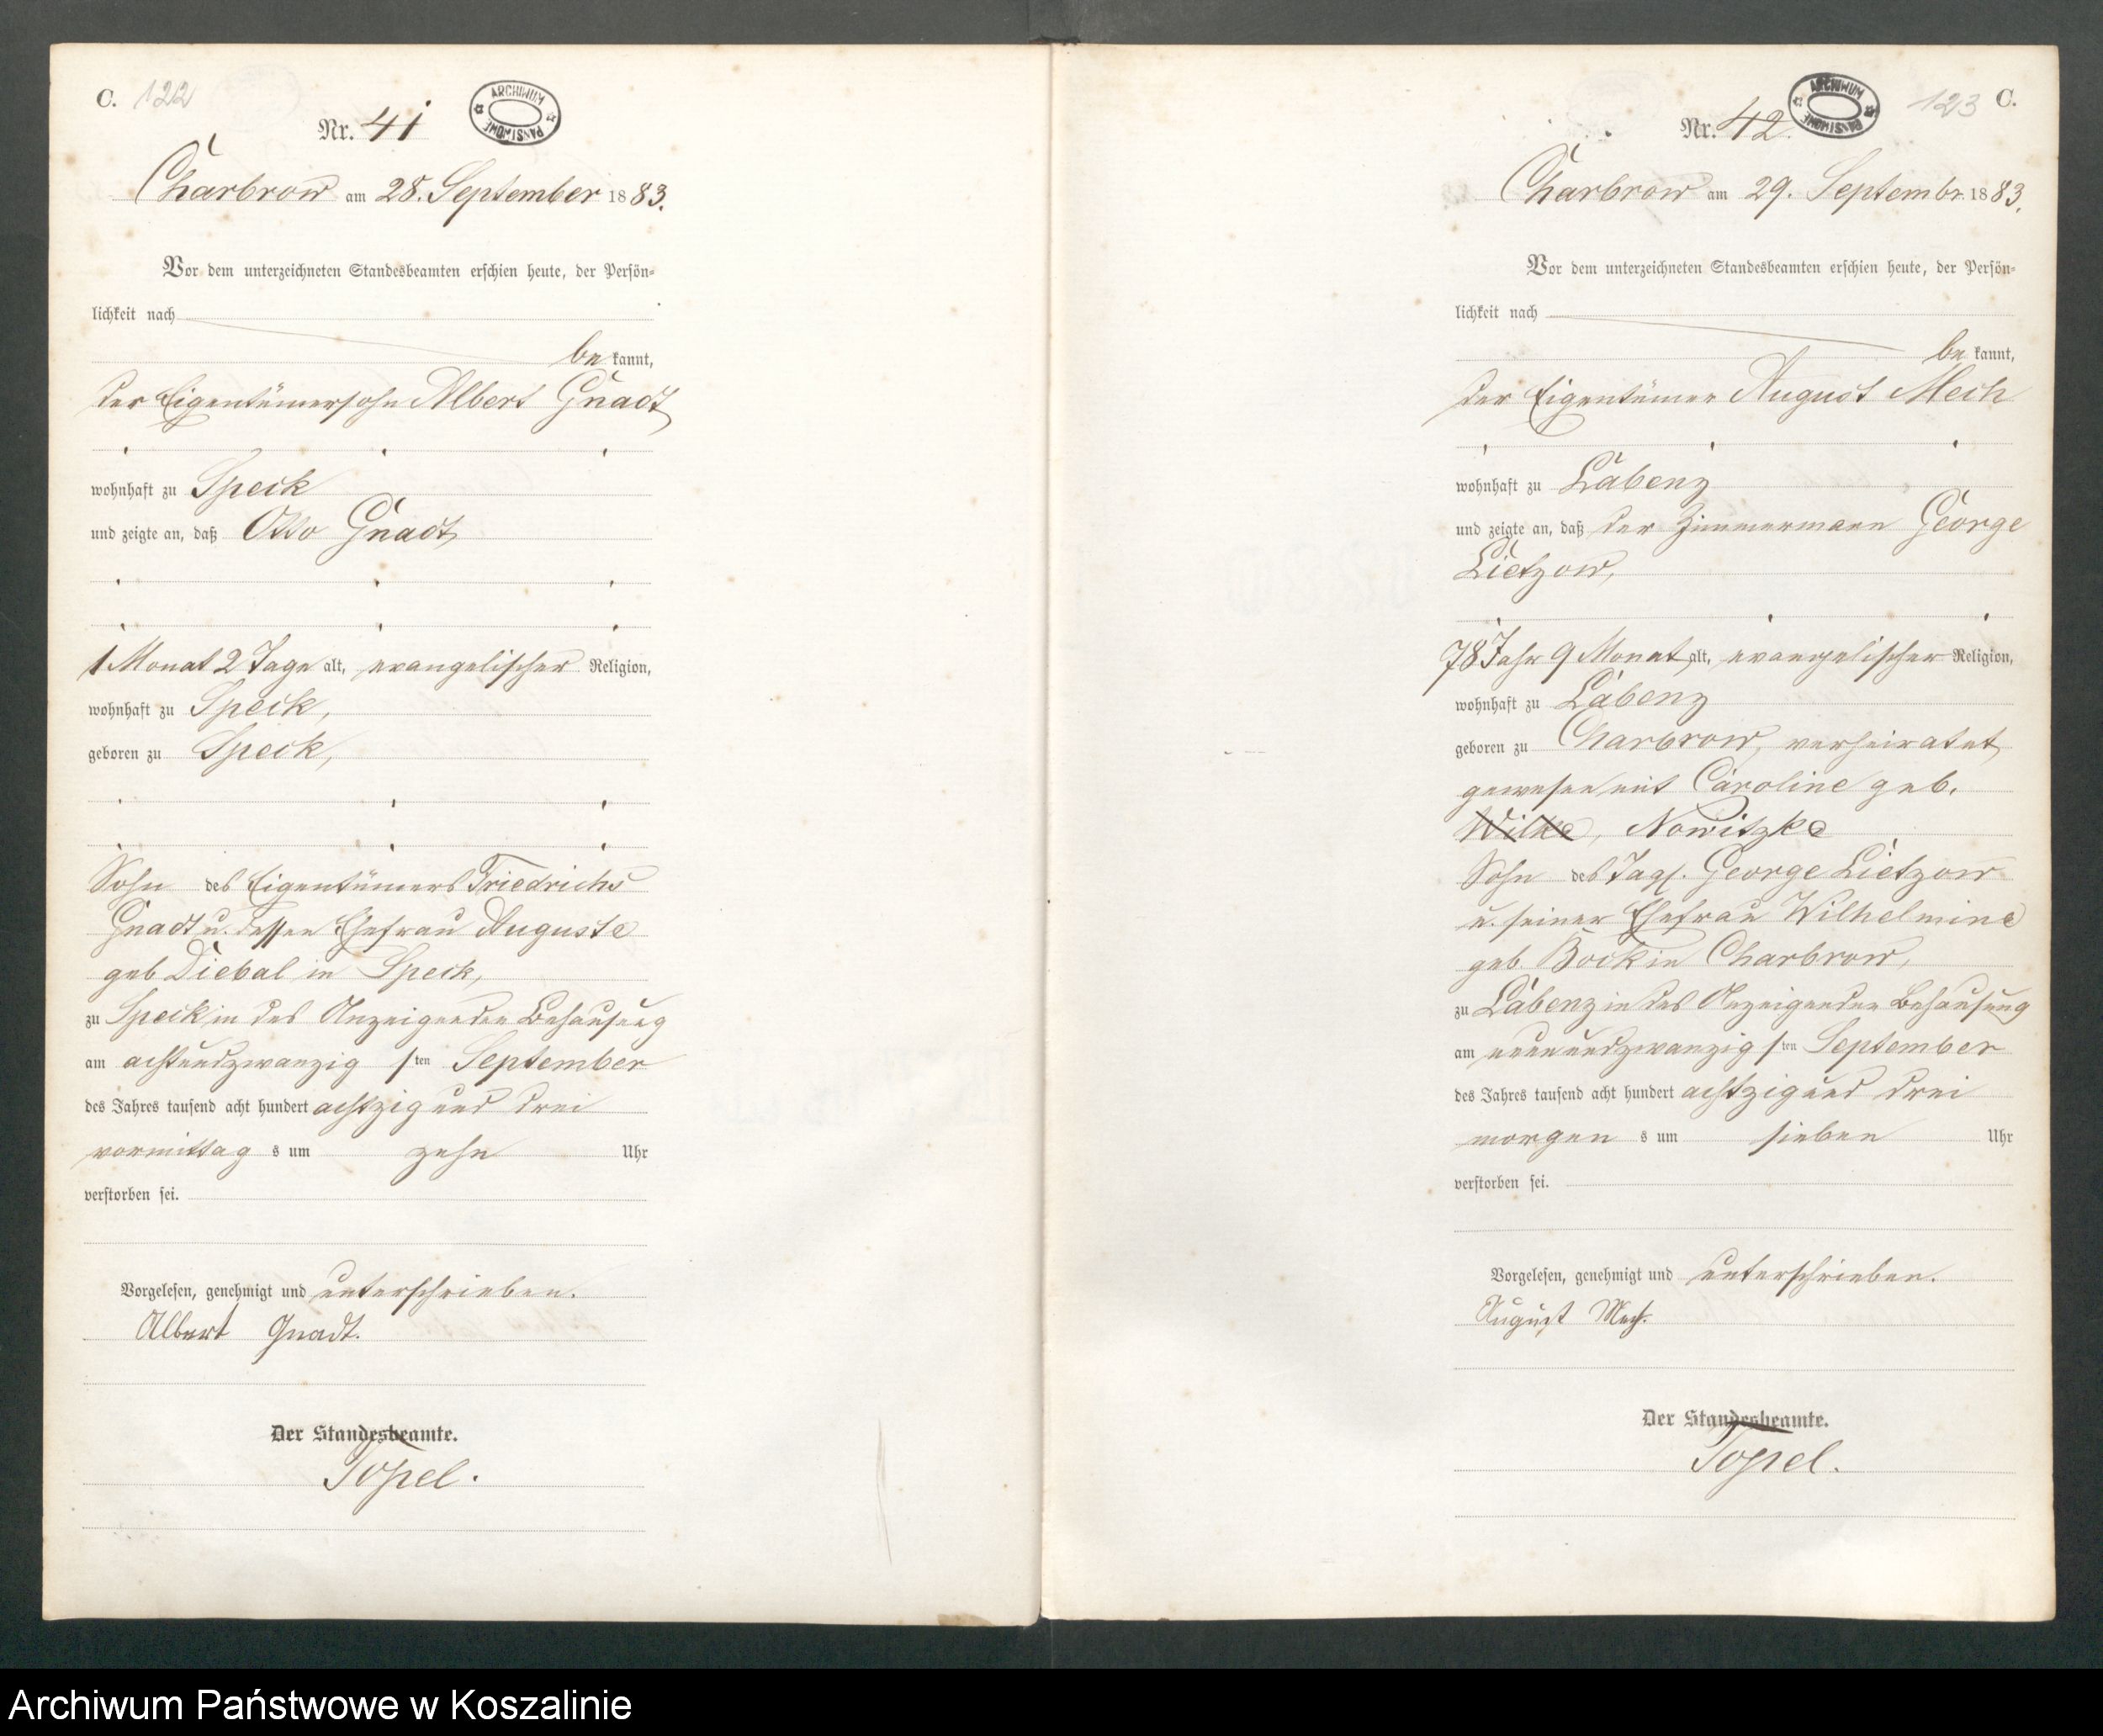 C. 122
Nr. 41
ARCHIWUM PAŃSTWOWE
Charbrow am 28. September 1883.
Vor dem unterzeichneten Standesbeamten erschien heute, der Persön-
lichkeit nach
be kannt,
der Eigentümersohn Albert Gnadt
wohnhaft zu Speck
und zeigte an, daß Otto Gnadt,
1 Monat 2 Tage alt, evangelischer Religion,
wohnhaft zu Speck,
geboren zu Speck,
Sohn des Eigentümers Friedrichs
Gnadt u. dessen Ehefrau Auguste
geb Diebal in Speck,
zu Speck in des Anzeigenden Behausung
am achtundzwanzig sten September
des Jahres tausend acht hundert achtzig und drei
vormittag s um zehn Uhr
verstorben sei.
Vorgelesen, genehmigt und unterschrieben.
Albert Gnadt.
Der Standesbeamte.
Topel.
123 C.
Nr. 42.
ARCHIWUM PAŃSTWOWE
Charbrow am 29. Septembr. 1883.
Vor dem unterzeichneten Standesbeamten erschien heute, der Persön-
lichkeit nach
be kannt,
der Eigentümer August Mech
wohnhaft zu Labenz
und zeigte an, daß der Zimmermann George
Lietzow,
78 Jahr 9 Monat alt, evangelischer Religion,
wohnhaft zu Labenz
geboren zu Charbrow, verheiratet
gewesen mit Caroline geb.
Wilke, Nowitzke
Sohn des Tagl. George Lietzow
u. seiner Ehefrau Wilhelmine
geb. Bock in Charbrow,
zu Labenz in des Anzeigenden Behausung
am neunundzwanzig sten September
des Jahres tausend acht hundert achtzig und drei
morgen s um sieben Uhr
verstorben sei.
Vorgelesen, genehmigt und unterschrieben.
August Mech.
Der Standesbeamte.
Topel.
Archiwum Państwowe w Koszalinie